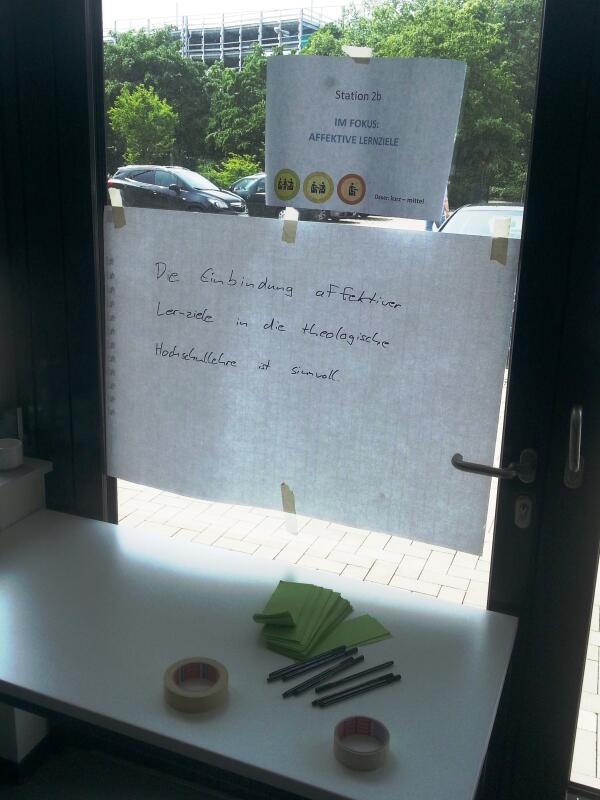 Station 2b
IM FOKUS:
AFFEKTIVE LERNZIELE
Dauer: kurz – mittel
Die Einbindung affektiver
Lernziele in die theologische
Hochschullehre ist sinnvoll.